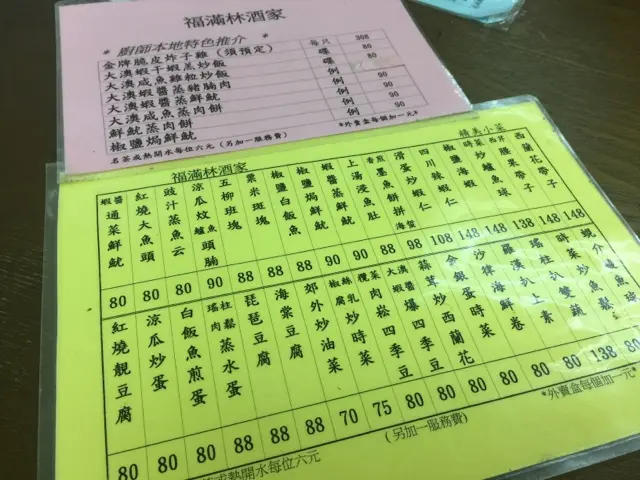 福滿林酒家
* 廚師本地特色推介 *
金牌脆皮炸子雞 (須預定) 每只 308
大澳蝦干蝦羔炒飯 碟 80
大澳咸魚雞粒炒飯 碟 80
大澳蝦醬蒸豬腩肉 例
大澳蝦醬蒸鮮魷 例 90
大澳咸魚蒸肉餅 例
鮮魷蒸肉餅 例 90
椒鹽焗鮮魷 例 90
名茶或熱開水每位六元 (另加一服務費)
*外賣盒每個加一元*
福滿林酒家
精美小菜
蝦醬通菜鮮魷
紅燒大魚頭
豉汁蒸魚云
涼瓜炆鱸魚頭腩
五柳斑塊
粟米斑塊
椒鹽白飯魚
椒鹽焗鮮魷
蝦醬蒸鮮魷
上湯浸魚肚
香煎墨魚餅拼海蜇
滑蛋炒蝦仁
四川辣蝦仁
椒鹽海蝦
時菜炒鱸魚球
西芹腰果帶子
西蘭花帶子
80 80 80 90 88 88 88 90 90 88 88 98 108 148 148 138 148 148
紅燒靚豆腐
涼瓜炒蛋
白飯魚煎蛋
瑤柱肉鬆蒸水蛋
琵琶豆腐
海棠豆腐
郊外炒油菜
椒絲腐乳炒時菜
欖菜肉松四季豆
大澳蝦醬爆四季豆
蒜茸炒西蘭花
金銀蛋時菜
沙律海鮮卷
羅漢扒上素
80 80 80 88 88 88 70 75 80 80 80 80 80 80 138 80
或熱開水每位六元
(另加一服務費)
*外賣盒每個加一元*